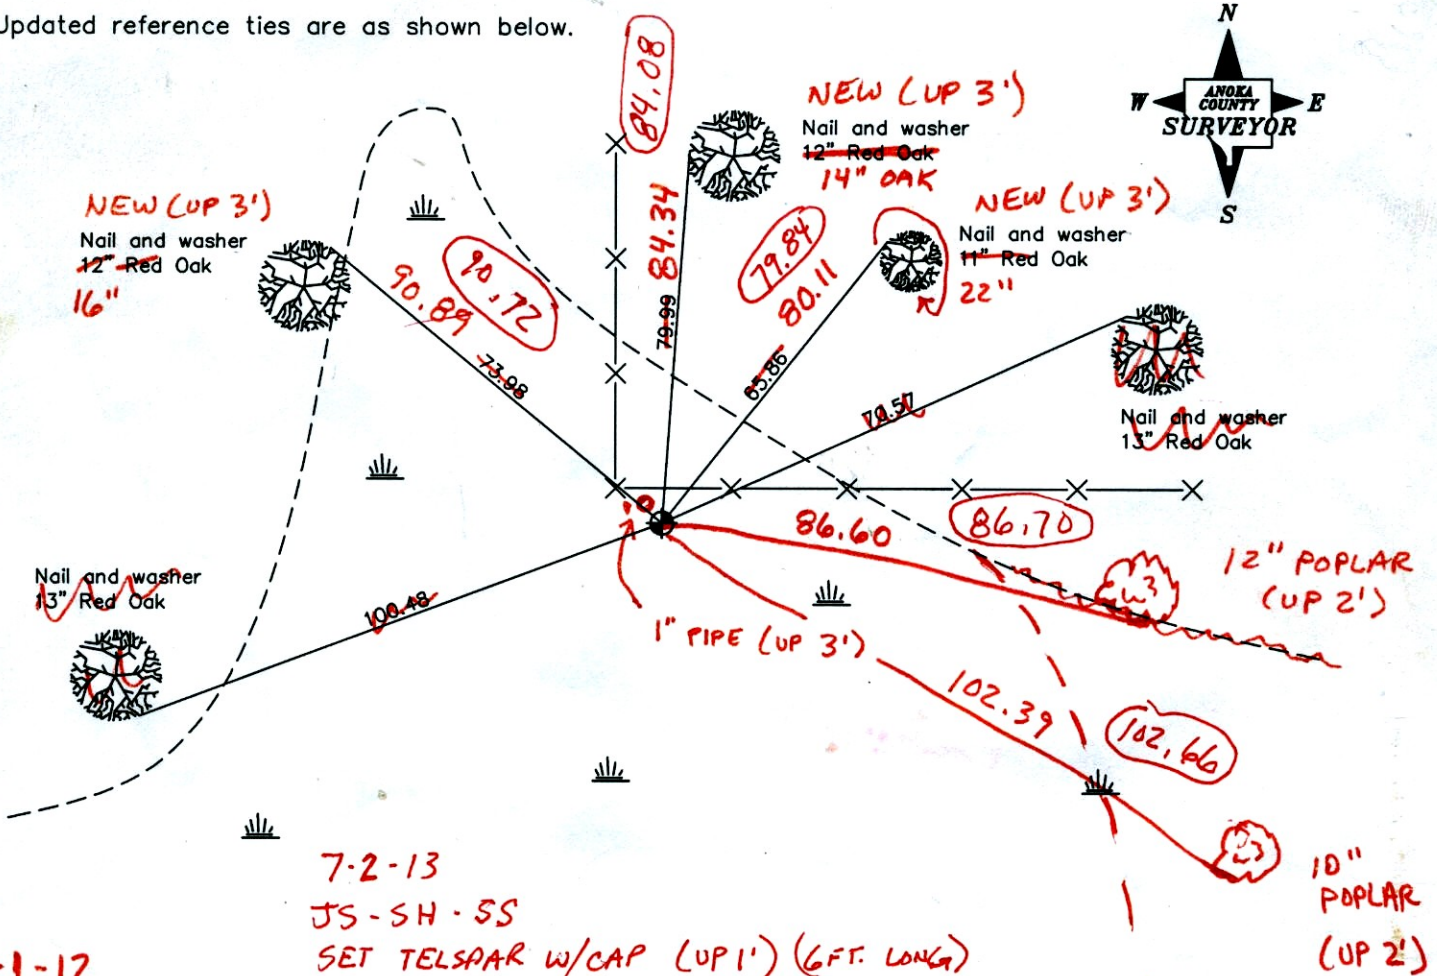 Updated reference ties are as shown below.
N
W
ANOKA
COUNTY
SURVEYOR
E
S
84.08
NEW (UP 3')
Nail and washer
12" Red Oak
14" OAK
NEW (UP 3')
Nail and washer
12" Red Oak
16"
NEW (UP 3')
Nail and washer
11" Red Oak
22"
90.72
90.89
73.98
84.34
79.99
79.84
80.11
65.86
70.57
Nail and washer
13" Red Oak
86.60
86.70
12" POPLAR
(UP 2')
Nail and washer
13" Red Oak
100.48
1" PIPE (UP 3')
102.39
102.66
10"
POPLAR
(UP 2')
7-2-13
JS-SH-SS
SET TELSPAR W/CAP (UP 1') (6FT. LONG)
1-17